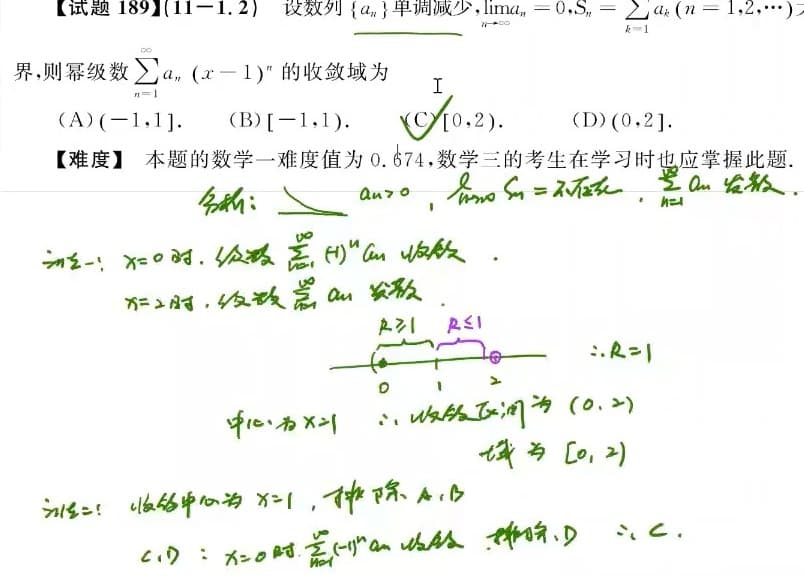 【试题 189】(11-1.2) 设数列 {aₙ} 单调减少, lim_{n→∞} aₙ = 0, Sₙ = ∑_{k=1} aₖ (n = 1,2,⋯)
界,则幂级数 ∑_{n=1}^{∞} aₙ (x-1)ⁿ 的收敛域为
(A)(-1,1]. (B)[-1,1). (C)[0,2). (D)(0,2].
【难度】 本题的数学一难度值为 0.674,数学三的考生在学习时也应掌握此题.
分析: aₙ>0, lim_{n→∞} Sₙ = 不存在. ∑_{n=1}^{∞} aₙ 发散.
法一: x=0时. 级数 ∑_{n=1}^{∞} (-1)ⁿ aₙ 收敛.
x=2时. 级数 ∑_{n=1}^{∞} aₙ 发散.
R≥1 R≤1
∴R=1
0 1 2
中心为 x=1 ∴收敛区间为 (0,2)
域为 [0,2)
法二: 收敛中心为 x=1, 排除 A,B
C,D: x=0时. ∑_{n=1}^{∞} (-1)ⁿ aₙ 收敛 排除D ∴C.